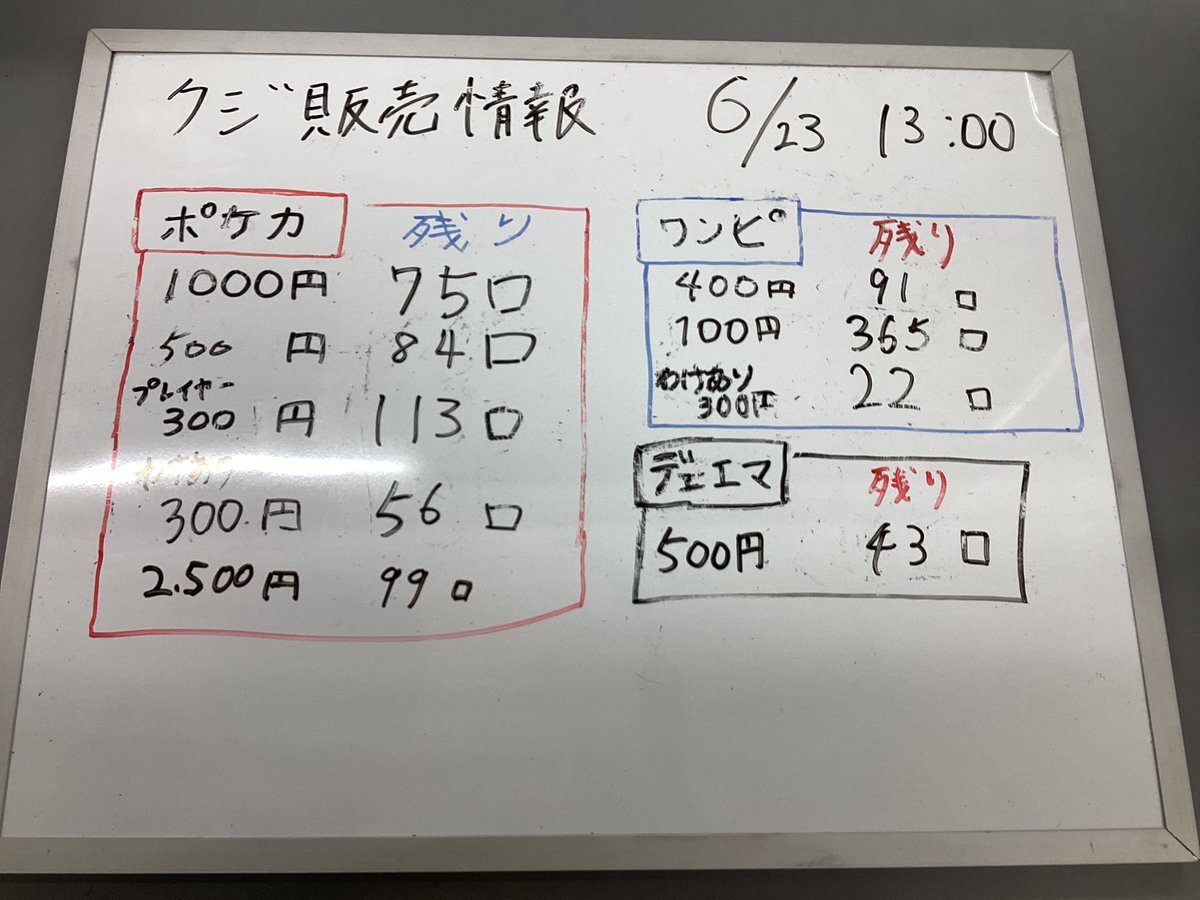 クジ販売情報 6/23 13:00
ポケカ 残り
1000円 75口
500円 84口
プレイヤー
300円 113口
わけあり
300円 56口
2.500円 99口
ワンピ 残り
400円 91口
100円 365口
わけあり
300円 22口
デュエマ 残り
500円 43口